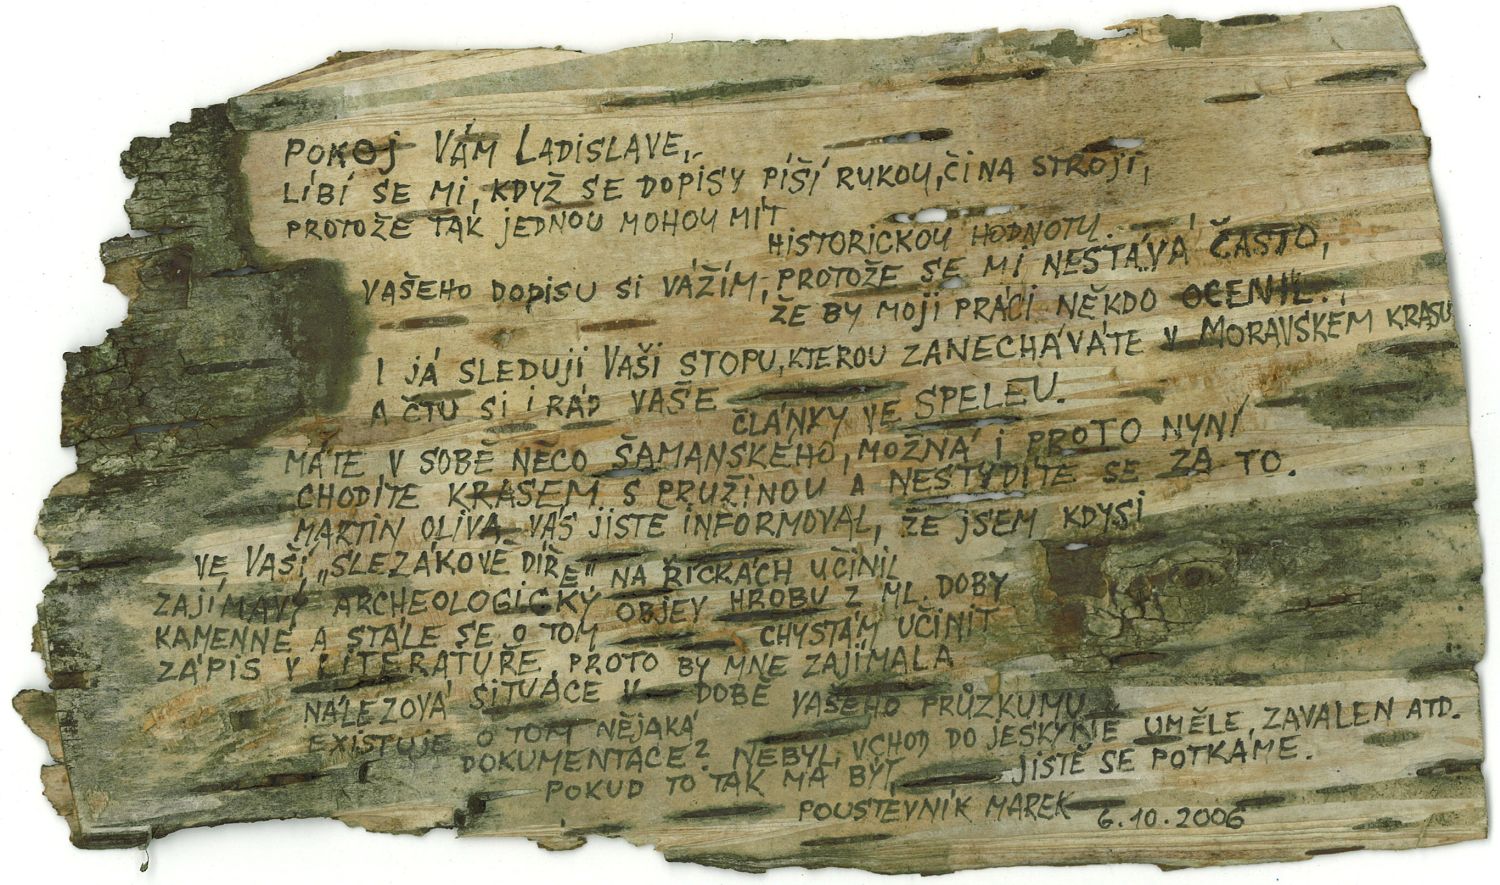 POKOJ VÁM LADISLAVE,
LÍBÍ SE MI, KDYŽ SE DOPISY PÍŠÍ RUKOU, ČI NA STROJI,
PROTOŽE TAK JEDNOU MOHOU MÍT
HISTORICKOU HODNOTU.
VAŠEHO DOPISU SI VÁŽÍM, PROTOŽE SE MI NESTÁVÁ ČASTO,
ŽE BY MOJI PRÁCI NĚKDO OCENIL.
I JÁ SLEDUJI VAŠI STOPU, KTEROU ZANECHÁVÁTE V MORAVSKÉM KRASU
A ČTU SI I RÁD VAŠE
ČLÁNKY VE SPELEU.
MÁTE V SOBĚ NĚCO ŠAMANSKÉHO, MOŽNÁ I PROTO NYNÍ
CHODÍTE KRASEM S PRUŽINOU A NESTYDÍTE SE ZA TO.
MARTIN OLIVA VÁS JISTĚ INFORMOVAL, ŽE JSEM KDYSI
VE VAŠÍ „SLEZÁKOVĚ DÍŘE" NA ŘÍČKÁCH UČINIL
ZAJÍMAVÝ ARCHEOLOGICKÝ OBJEV HROBU Z ML. DOBY
KAMENNÉ A STÁLE SE O TOM CHYSTÁM UČINIT
ZÁPIS V LITERATUŘE, PROTO BY MNE ZAJÍMALA
NÁLEZOVÁ SITUACE V DOBĚ VAŠEHO PRŮZKUMU.
EXISTUJE O TOM NĚJAKÁ
DOKUMENTACE? NEBYL VCHOD DO JESKYNĚ UMĚLE ZAVALEN ATD.
POKUD TO TAK MÁ BÝT, JISTĚ SE POTKÁME.
POUSTEVNÍK MAREK 6.10.2006